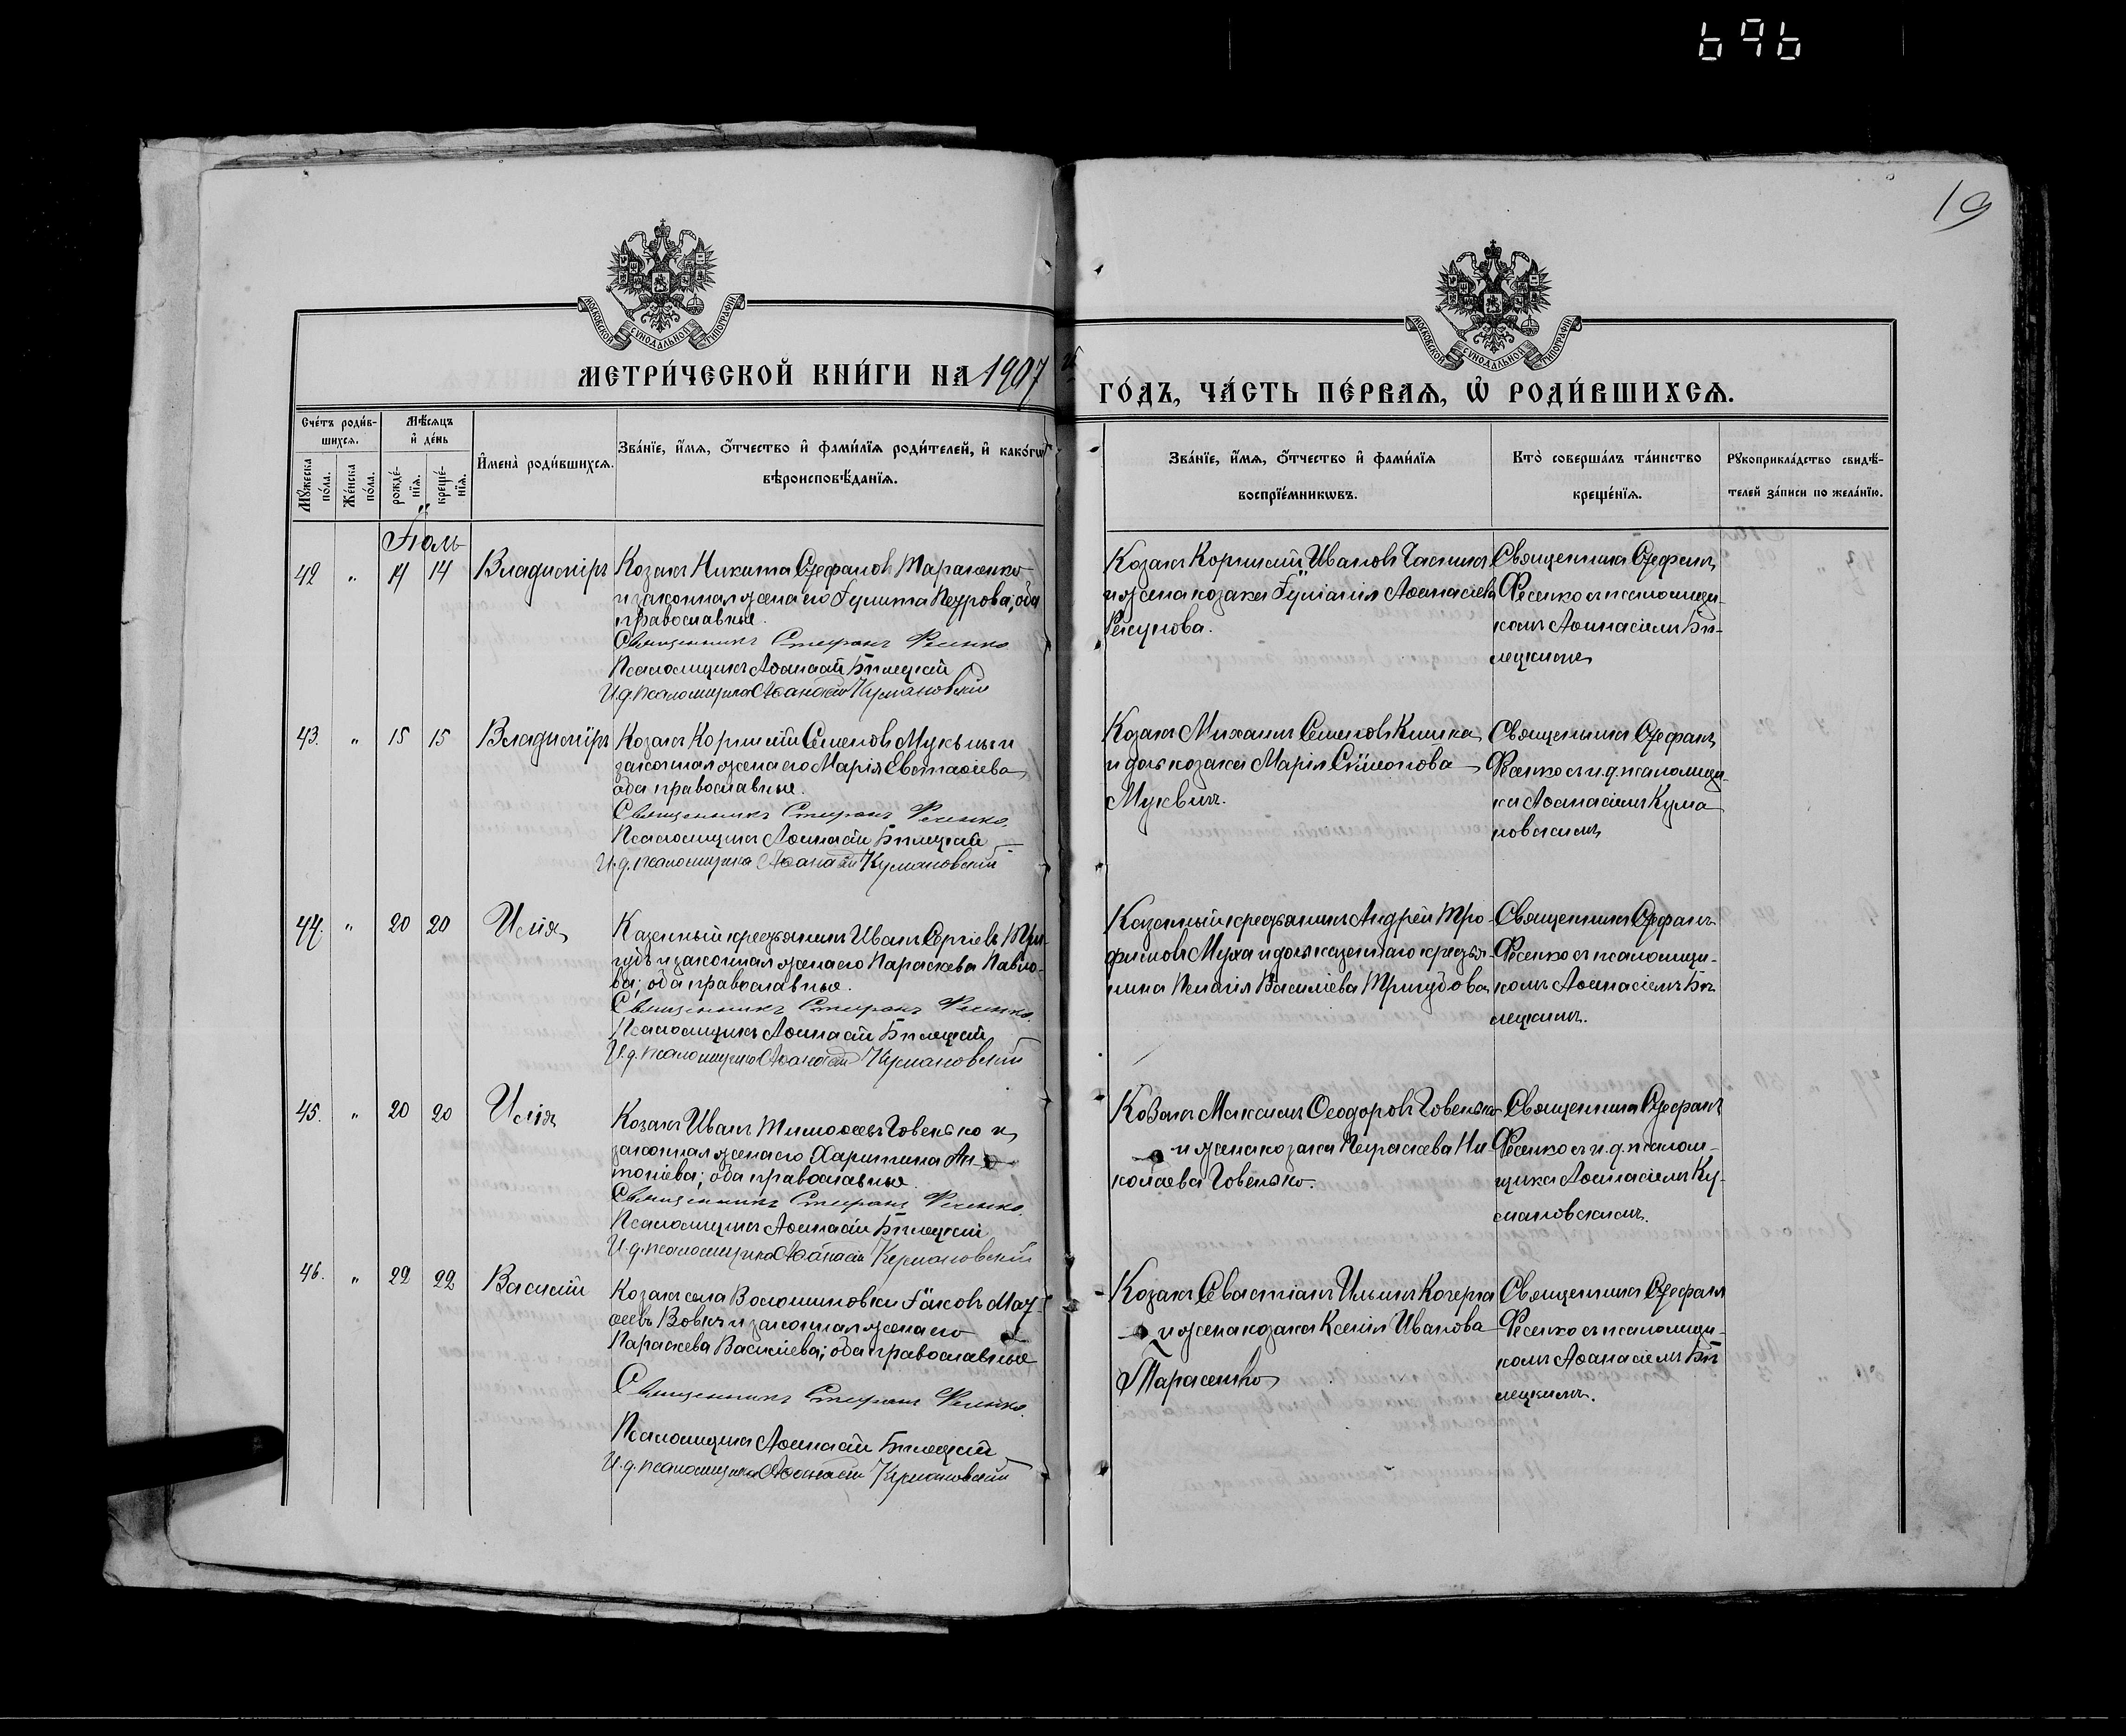 696
19
МОСКОВСКОЙ СѴНОДАЛЬНОЙ ТИПОГРАФІИ
МОСКОВСКОЙ СѴНОДАЛЬНОЙ ТИПОГРАФІИ
МЕТРИ́ЧЕСКОЙ КНИ́ГИ НА 1907 й
ГО́ДЪ, ЧА́СТЬ ПЕ́РВАѦ, Ѡ҆ РОДИ́ВШИХСѦ.
Сче́тъ роди́в-
шихсѧ.
Мꙋ́жеска по́ла.
Же́нска по́ла.
Мѣ́сѧцъ
и҆ де́нь
рожде́-
нїѧ.
креще́-
нїѧ.
И҆мена̀ роди́вшихсѧ.
Зва́нїе, и҆́мѧ, ѻ҆́тчество и҆ фами́лїѧ роди́телей, и҆ како́гѡ
вѣроисповѣ́данїѧ.
Зва́нїе, и҆́мѧ, ѻ҆́тчество и҆ фами́лїѧ
воспрїе́мникѡвъ.
Кто̀ соверша́лъ та́инство
креще́нїѧ.
Рꙋкоприкла́дство свидѣ́-
телей за́писи по жела́нїю.
Іюль
42 " 14 14 Владиміръ
Козакъ Никита Стефановъ Тараненко
и законная жена его Іулита Петрова; оба
православные.
Священникъ Стефанъ Фесенко
Псаломщикъ Аѳанасій Билецкій
И.д. псаломщика Аѳанасій Кумановскій
Козакъ Корнилій Ивановъ
и жена козака Іуліанія Аѳанасіева
Священникъ Стефанъ
Фесенко съ псаломщи-
комъ Аѳанасіемъ Би-
лецкимъ
43. " 15 15 Владиміръ
Козакъ Корнилій Семеновъ и
законная жена его Марія Евстаѳіева
оба православные.
Священникъ Стефанъ Фесенко.
Псаломщикъ Аѳанасій Билецкій
И.д. псаломщика Аѳанасій Кумановскій
Козакъ Михаилъ Семеновъ Кишка
и дочь козака Марія Симонова
Священникъ Стефанъ
Фесенко съ и.д. псаломщи-
ка Аѳанасіемъ Кума
новскимъ
44. " 20 20 Илія
Казенный крестьянинъ Иванъ Сергіевъ Три-
губъ и законная жена его Параскева Павло-
ва; оба православные.
Священникъ Стефанъ Фесенко.
Псаломщикъ Аѳанасій Билецкій
И.д. псаломщика Аѳанасій Кумановскій
Казенный крестьянинъ Андрей Тро-
фимовъ Муха и дочь казеннаго крестья-
нина Пелагія Василіева Тригубова
Священникъ Стефанъ
Фесенко съ псаломщи-
комъ Аѳанасіемъ Би-
лецкимъ.
45. " 20 20 Илія
Козакъ Иванъ Тимоѳеевъ Говенько и
законная жена его Харитина Ан-
тоніева; оба православные.
Священникъ Стефанъ Фесенко.
Псаломщикъ Аѳанасій Билецкій
И.д. псаломщика Аѳанасій Кумановскій
Козакъ Максимъ Ѳеодоровъ Говенько
и жена козака Параскева Ни-
колаева Говенько.
Священникъ Стефанъ
Фесенко съ и.д. псалом-
щика Аѳанасіемъ Ку-
мановскимъ.
46. " 22 22 Василій
Козакъ села Волошиновки Іаковъ Мат-
ѳеевъ Вовкъ и законная жена его
Параскева Василіева; оба православные
Священникъ Стефанъ Фесенко.
Псаломщикъ Аѳанасій Билецкій
И.д. псаломщика Аѳанасій Кумановскій
Козакъ Севастіанъ Ильинъ Кочерга
и жена козака Ксенія Иванова
Тарасенко
Священникъ Стефанъ
Фесенко съ псаломщи-
комъ Аѳанасіемъ Би
лецкимъ.